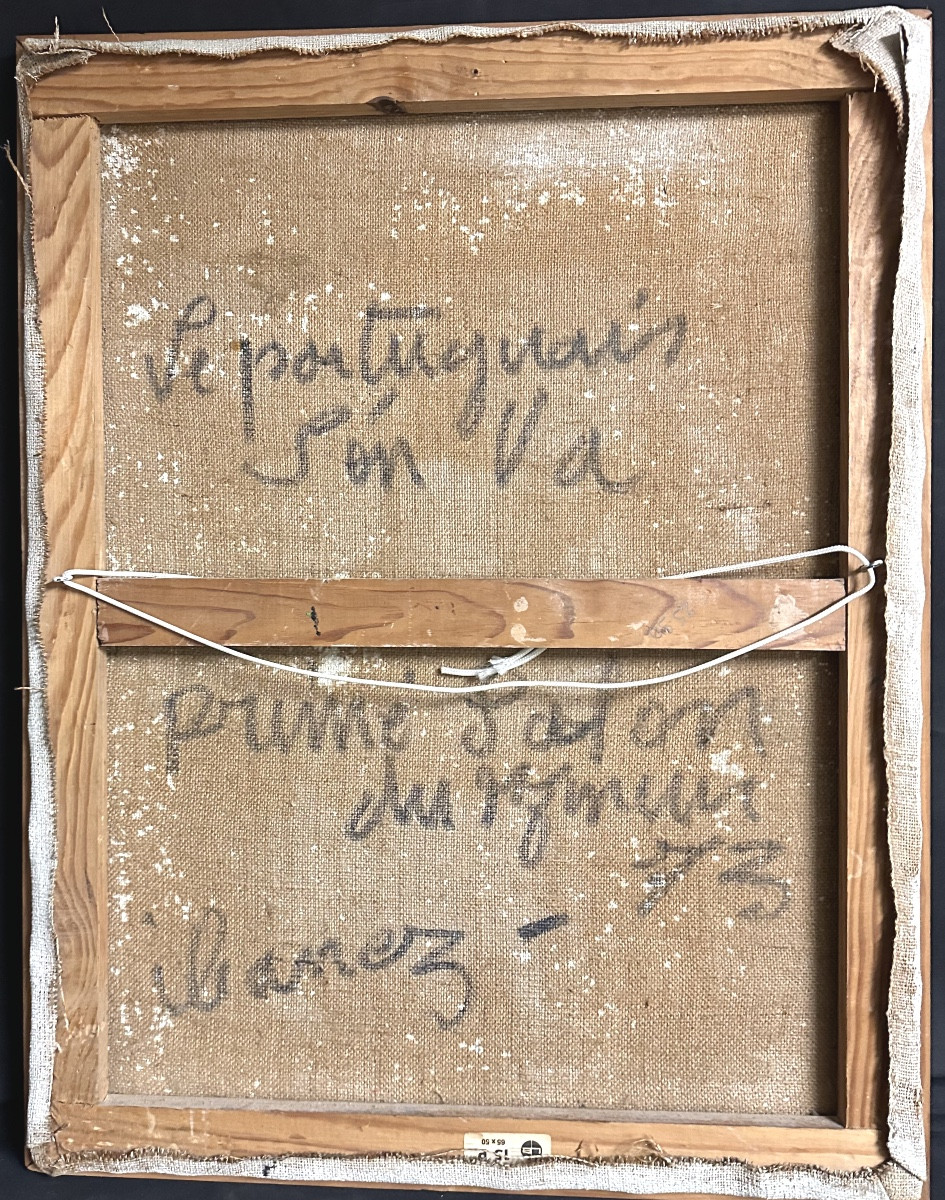 Le portuguais
s'en Va
primé Salon
du
73
ibanez -
15 P
65 x 50